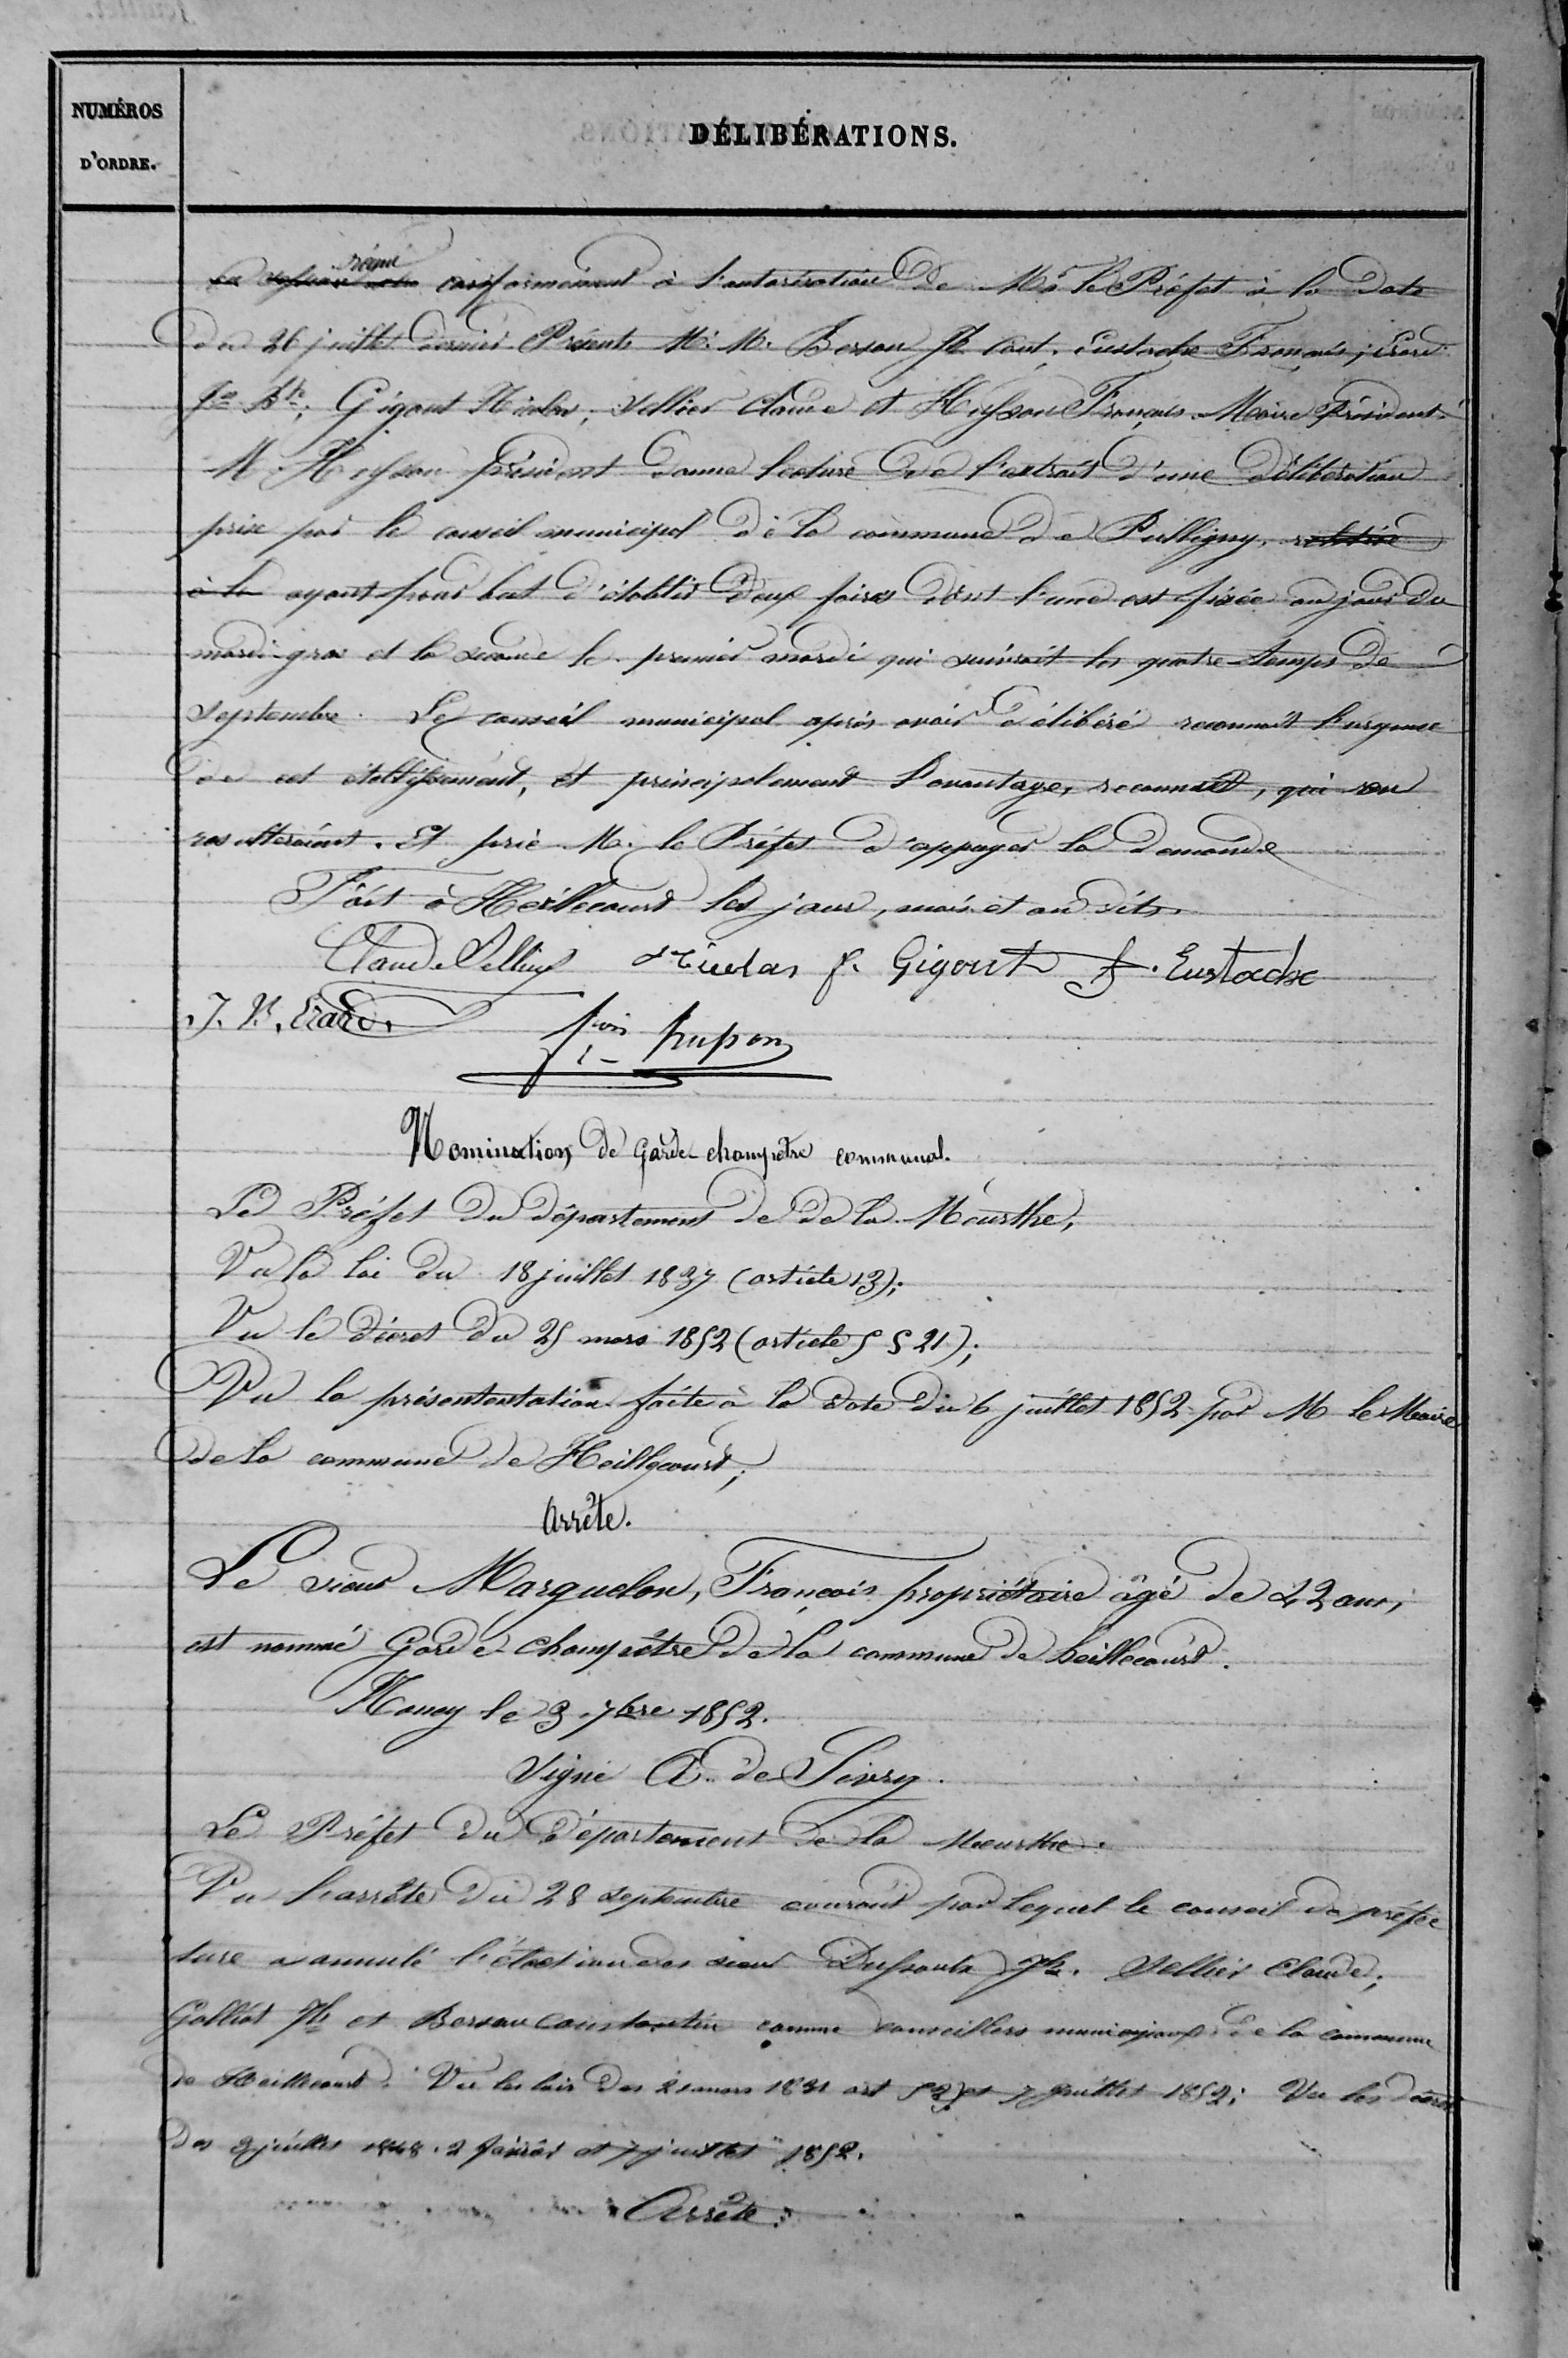 NUMÉROS
D'ORDRE.
DÉLIBÉRATIONS.
réuni
conformément à l'autorisation de Mr le Préfet à la date
du 26 juillet dernier Présents M. M. Berson Jh Const, Eustache François, Erard
Jn Bte; Gigout Nicolas, Sellier Claude et Husson François Maire Président.
M Husson président donne lecture de l'extrait d'une délibération
prise par le conseil municipal de la commune de Pulligny, relative
à la ayant pour but d'établir deux foires dont l'une est fixée au jour du
mardi-gras et la seconde le premier mardi qui suivrait les quatre-temps de
septembre. Le conseil municipal après avoir délibéré reconnait l'urgence
de cet établissement, et principalement l'avantage, reconnait, qui en
resulteraient. Et prie M. le Préfet d'appuyer la demande
Fait à Heillecourt les jour, mois et an dits
Claude Sellier Nicolas f. Gigout f. Eustache
J. Bt. Erard fois husson
Nomination de garde champêtre communal.
Le Préfet du département de de la Meurthe,
Vu la loi du 18 juillet 1837 (article 13);
Vu le décret du 25 mars 1852 (article 5 § 21);
Vu la présentontation faite à la date du 6 juillet 1852 par M le Maire
de la commune de Heillecourt;
Arrête.
Le sieur Marquelon, François propriétaire âgé de 42 ans,
est nommé Garde-champêtre de la commune de heillecourt.
Nancy le 3 7bre 1852.
Signé A. de Sivry.
Le Préfet du Département de la Meurthe.
Vu l'arrêté du 28 septembre courant par lequel le conseil de préfec
ture a annulé l'élection des sieurs Dussoulx Jh. Sellier Claude;
Galliot Jh et Berson Constantin comme conseillers municipaux de la commune
de Heillecourt. Vu les lois des 21 mars 1831 art 52 et 7 juillet 1852; Vu les décrets
des 3 juillet 1848. 2 février et 7 juillet 1852.
Arrête: